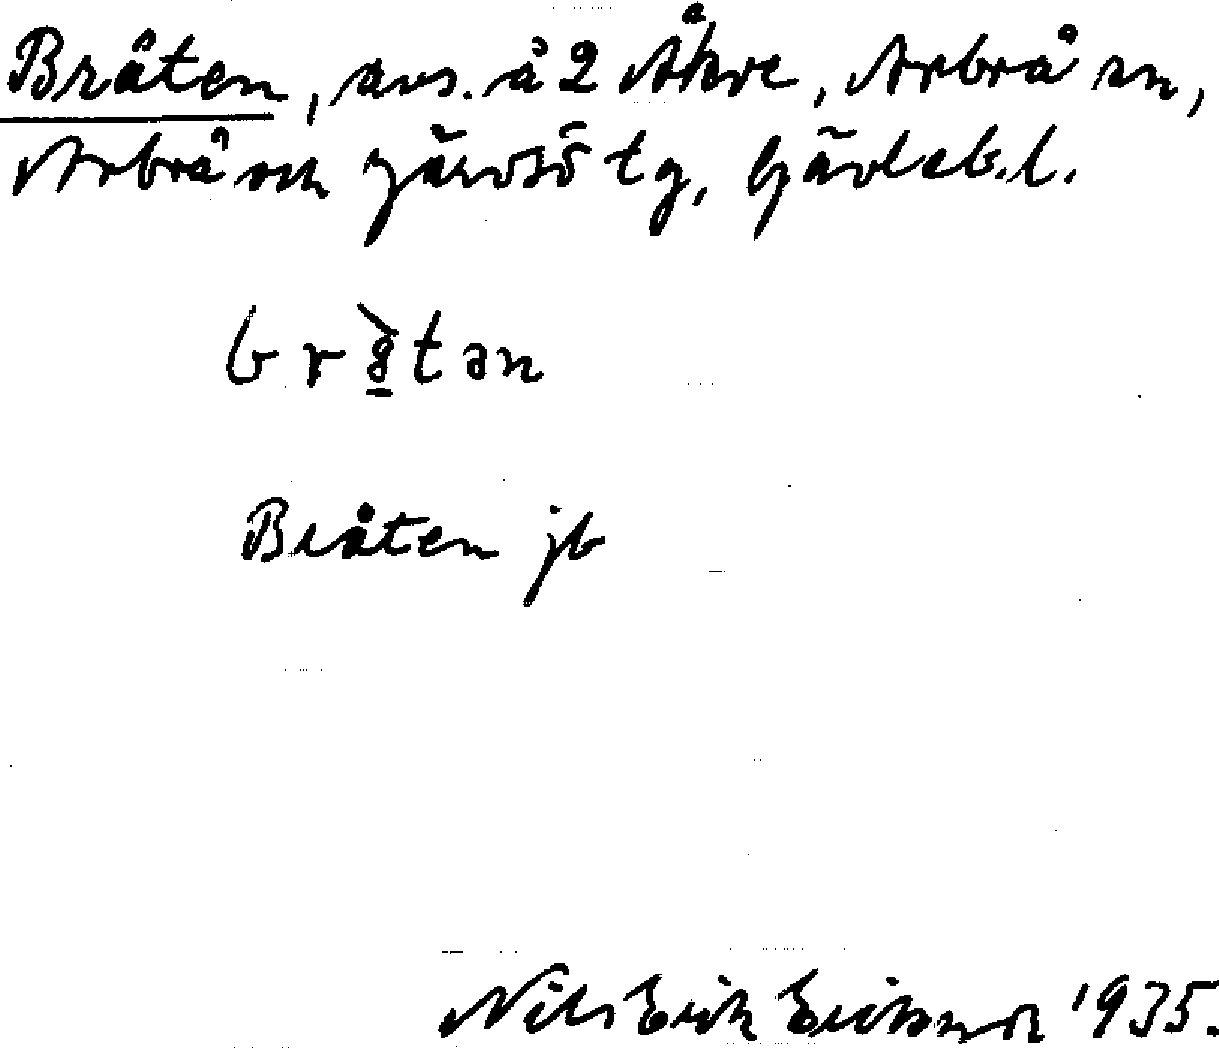 Bråten, avs. å 2 Åkre, Arbrå sn,
Arbrå och Järvsö tg, Gävleb. l.
brɔ̱̀tən
Bråten jb
Nils Erik Eriksson 1935.